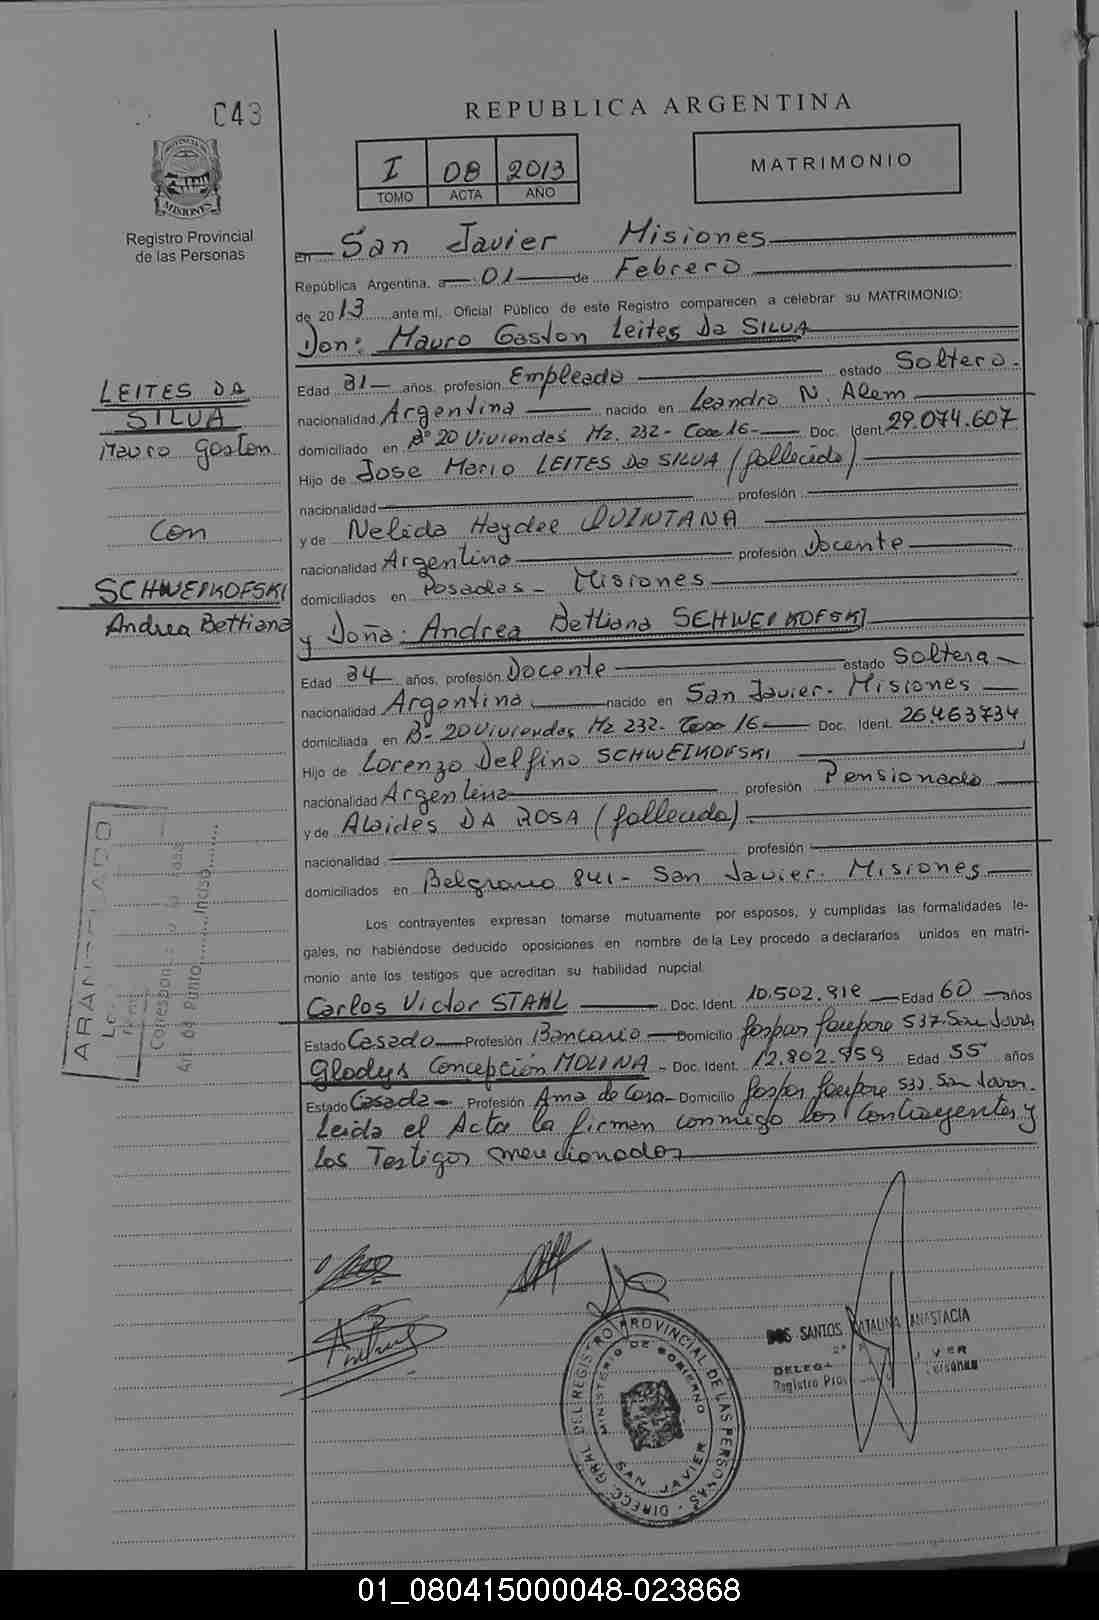 C43
REPUBLICA ARGENTINA
I 08 2013
TOMO ACTA AÑO
MATRIMONIO
PROVINCIA DE
MISIONES
Registro Provincial
de las Personas
En San Javier Misiones
República Argentina, a 01 de Febrero
de 2013 ante mi, Oficial Público de este Registro comparecen a celebrar su MATRIMONIO:
Don: Mauro Gaston Leites Da SILVA
LEITES DA
SILVA
Mauro Gaston
Con
SCHWEIKOFSKI
Andrea Bettiana
Edad 31 años, profesión Empleado estado Soltero.
nacionalidad Argentina nacido en Leandro N. Alem
domiciliado en Bº 20 Viviendas Mz. 232 - Casa 16 - Doc. Ident. 29.074.607
Hijo de Jose Mario LEITES Da SILVA (fallecido)
nacionalidad profesión
y de Nelida Haydee QUINTANA
nacionalidad Argentina profesión Docente
domiciliados en Posadas - Misiones
y Doña: Andrea Bettiana SCHWEIKOFSKI
Edad 34 años, profesión Docente estado Soltera
nacionalidad Argentina nacido en San Javier - Misiones
domiciliada en Bº 20 Viviendas Mz 232 - Casa 16 - Doc. Ident. 26.463734
Hijo de Lorenzo Delfino SCHWEIKOFSKI
nacionalidad Argentina profesión Pensionado
y de Alcides DA ROSA (fallecida)
nacionalidad profesión
domiciliados en Belgrano 841 - San Javier - Misiones
Los contrayentes expresan tomarse mutuamente por esposos, y cumplidas las formalidades le-
gales, no habiéndose deducido oposiciones en nombre de la Ley procedo a declararlos unidos en matri-
monio ante los testigos que acreditan su habilidad nupcial.
Carlos Victor STAHL Doc. Ident. 10.502.918 Edad 60 años
Estado Casado Profesión Bancario Domicilio 537 San Javier
Gladys Concepción MOLINA - Doc. Ident. 12.802.959 Edad 55 años
Estado Casada Profesión Ama de Casa - Domicilio San Javier.
Leida el Acta la firman conmigo los Contrayentes y
los Testigos mencionados
ARANCELADO
Corresponde
Art. 64 Punto Inciso
DIRECC. GRAL. DEL REGISTRO PROVINCIAL DE LAS PERSONAS
MINISTERIO DE GOBIERNO
SAN JAVIER
DOS SANTOS CATALINA ANASTACIA
01_080415000048-023868